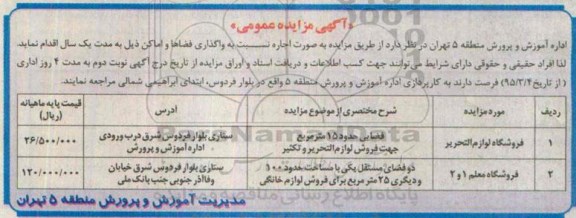 «آگهی مزایده عمومی»
اداره آموزش و پرورش منطقه ۵ تهران در نظر دارد از طریق مزایده به صورت اجاره نسبت به واگذاری فضاها و اماکن ذیل به مدت یک سال اقدام نماید.
لذا افراد حقیقی و حقوقی دارای شرایط می‌توانند جهت کسب اطلاعات و دریافت اسناد و اوراق مزایده از تاریخ درج آگهی نوبت دوم به مدت ۴ روز اداری
( از تاریخ ۹۵/۳/۴) فرصت دارند به کارپردازی اداره آموزش و پرورش منطقه ۵ واقع در بلوار فردوس، ابتدای ابراهیمی شمالی مراجعه نمایند.
ردیف مورد مزایده شرح مختصری از موضوع مزایده آدرس قیمت پایه ماهیانه (ریال)
۱ فروشگاه لوازم التحریر فضایی حدود ۱۵ متر مربع ستاری بلوار فردوس شرق درب ورودی ۲۶/۵۰۰/۰۰۰
جهت فروش لوازم التحریر و تکثیر اداره آموزش و پرورش
۲ فروشگاه معلم ۱ و ۲ دو فضای مستقل یکی با مساحت حدود ۱۰۰ ستاری بلوار فردوس شرق خیابان ۱۲۰/۰۰۰/۰۰۰
و دیگری ۲۵ متر مربع برای فروش لوازم خانگی وفا آذر جنوبی جنب بانک ملی
مدیریت آموزش و پرورش منطقه ۵ تهران